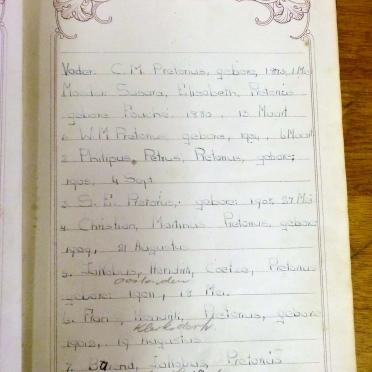 Vader. C. M. Pretorius, gebore, 1880, 1 Mei
Moeder Susara, Elisabeth, Pretorius
gebore Fouché. 1880. 13 Maart
1. W. M Pretorius, gebore, 1904, 6 Maart
2 Philipus, Petrus, Pretorius, gebore;
1905, 4 Sept
3 S. E. Pretorius, gebore: 1907, 27 Mei
4. Christian, Martinus Pretorius, gebore
1909, 21 Augustus
5. Jakobus, Hendrik, Coetze, Pretorius
overleden
gebore: 1911, 13 Mei.
6. Hendrik, Pretorius, gebore
Klerksdorp
1912, 19 Augustus
7. Barend, Jakobus, Pretorius